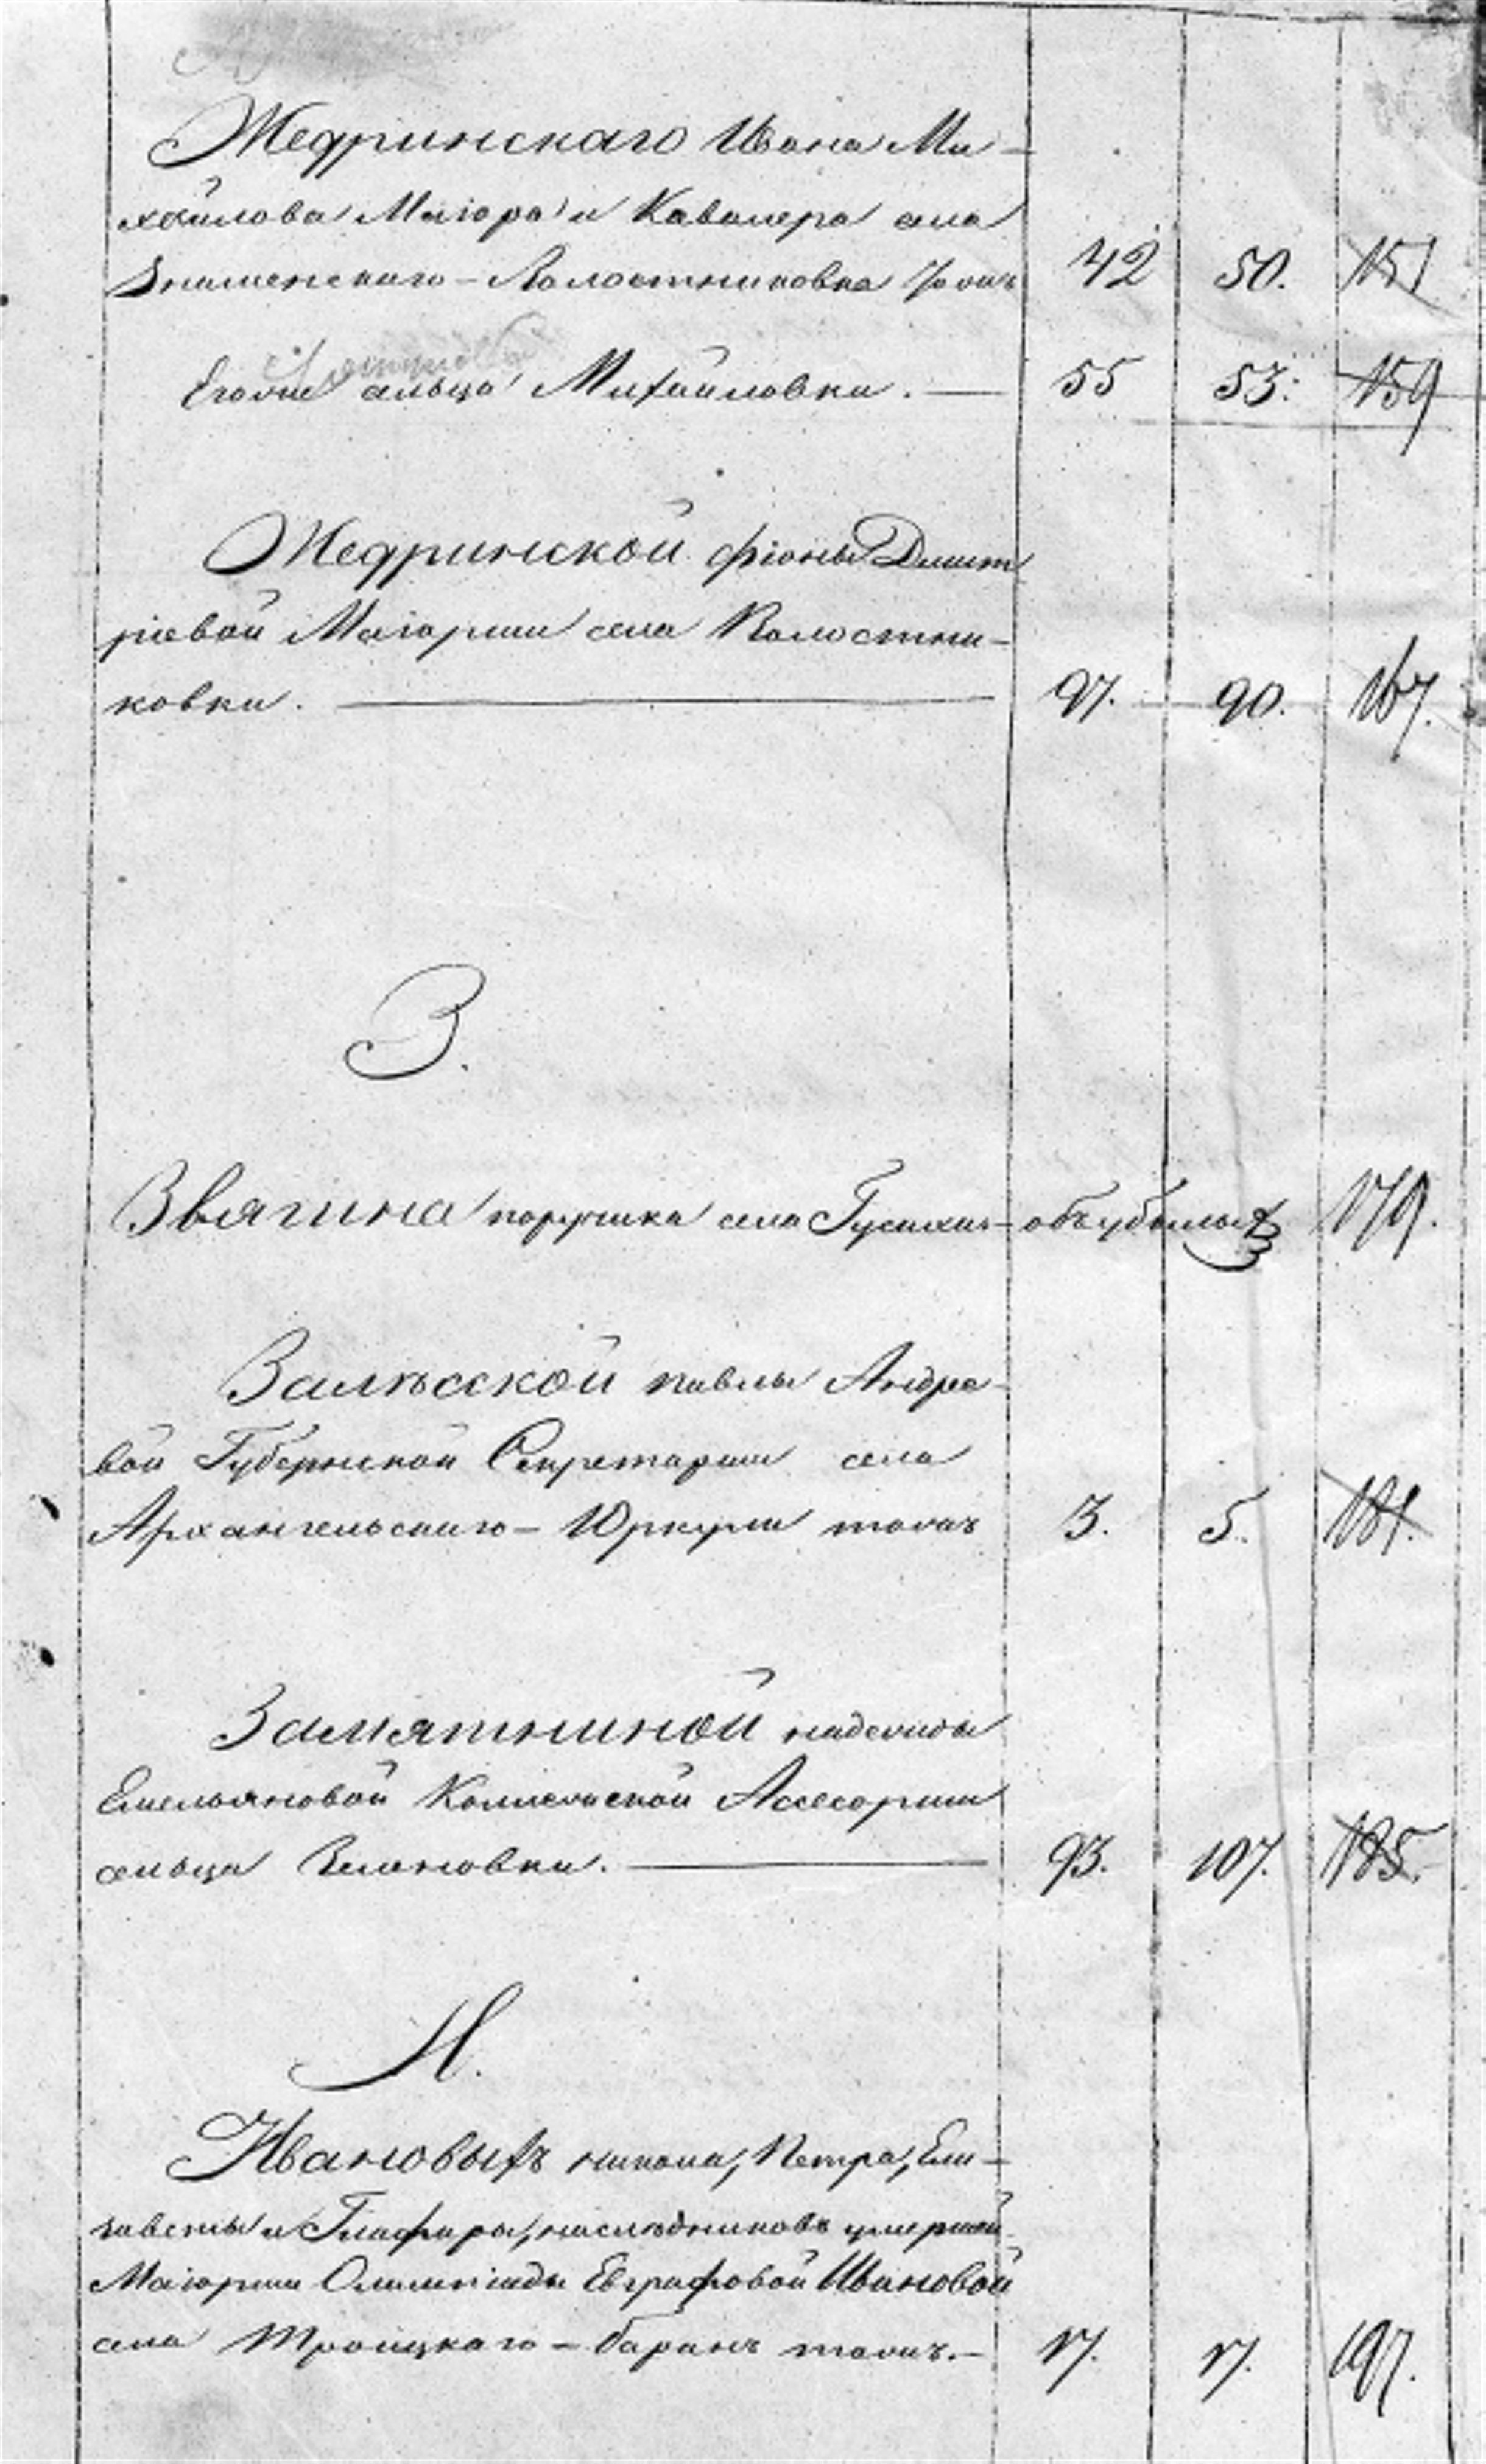 Жедринскаго Ивана Ми-
хайлова Маіора и Кавалера села
Знаменскаго - Колостниковка тожъ 42 50. 151
Егоже сельца Михайловки. — 55 53. 159
Жедринской Фіоны Дмит
ріевой Маіорши села Колостни-
ковки. — 97. 90. 167.
З.
Звягина поручика села Гусихи - объ убылыхъ 179.
Залѣсской Павлы Андре-
вой Губернской Секретарши села
Архангельскаго - Юркули тожъ 3. 5. 181.
Замятниной Надежды
Емельяновой Коллежской Асесорши
сельца 93. 107. 185.
И.
Ивановыхъ Петра, Ели-
заветы и Глафиры, наслѣдниковъ умершей
Маіорши Олимпіады Евграфовой Ивановой
села Троицкаго - Баранъ тожъ. — 17. 17. 197.